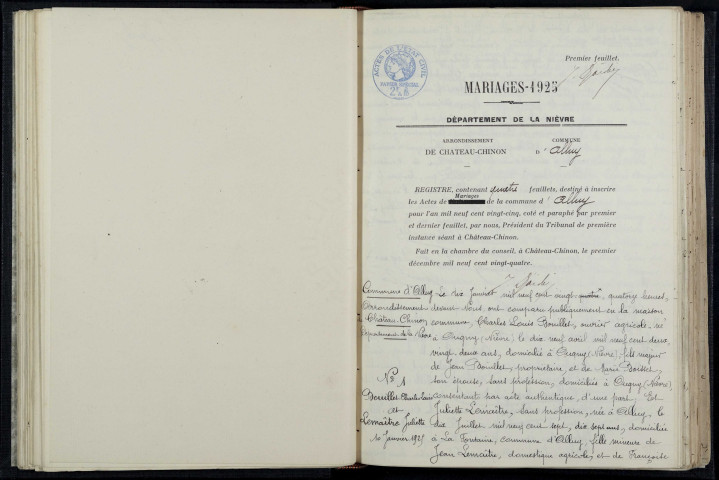 Premier feuillet.
ACTES DE L'ÉTAT CIVIL
MARIAGES-1925
DÉPARTEMENT DE LA NIÈVRE
ARRONDISSEMENT
DE CHATEAU-CHINON
COMMUNE
D' Alluy
REGISTRE, contenant quatre feuillets, destiné à inscrire
Mariages
les Actes de de la commune d' Alluy
pour l'an mil neuf cent vingt-cinq, coté et paraphé par premier
et dernier feuillet, par nous, Président du Tribunal de première
instance séant à Château-Chinon.
Fait en la chambre du conseil, à Château-Chinon, le premier
décembre mil neuf cent vingt-quatre.
Commune d'Alluy
Arrondissement
de Château-Chinon
Département de la Nièvre
N° 1
Bouillet Charles Louis
et
Lemaître Juliette
10 Janvier 1925
Le dix Janvier mil neuf cent vingt-quatre, quatorze heures,
devant nous, ont comparu publiquement en la maison
commune, Charles Louis Bouillet, ouvrier agricole, né
à Ougny (Nièvre) le dix neuf avril mil neuf cent deux,
vingt-deux ans, domicilié à Ougny (Nièvre) fils majeur
de Jean Bouillet, propriétaire, et de Marie Boisset,
son épouse, sans profession, domiciliés à Ougny (Nièvre)
consentants par acte authentique, d'une part. Et
Juliette Lemaître, sans profession, née à Alluy, le
dix Juillet mil neuf cent sept, dix sept ans, domiciliée
à La Fontaine, commune d'Alluy, fille mineure de
Jean Lemaître, domestique agricole, et de Françoise